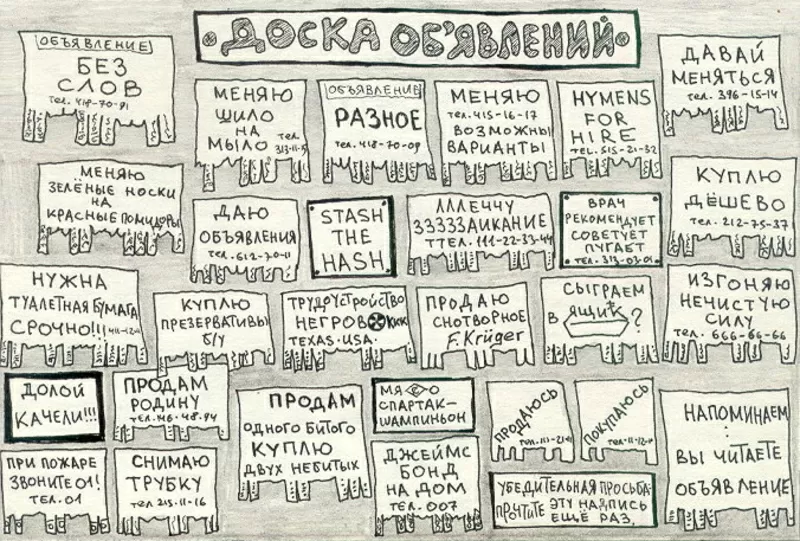 ДОСКА ОБ'ЯВЛЕНИЙ
ОБЪЯВЛЕНИЕ
БЕЗ
СЛОВ
тел. 418-70-91
МЕНЯЮ
ШИЛО
НА тел.
МЫЛО 313-11-5
ОБЪЯВЛЕНИЕ
РАЗНОЕ
тел. 418-70-09
МЕНЯЮ
тел. 415-16-17
ВОЗМОЖНЫ
ВАРИАНТЫ
HYMENS
FOR
HIRE
TEL. 515-21-32
ДАВАЙ
МЕНЯТЬСЯ
тел. 396-15-14
МЕНЯЮ
ЗЕЛЁНЫЕ НОСКИ
НА
КРАСНЫЕ ПОМИДОРЫ
ДАЮ
ОБЪЯВЛЕНИЯ
тел. 612-70-11
STASH
THE
HASH
ЛЛЕЧЧУ
ЗЗЗЗЗАИКАНИЕ
ТТЕЛ. 111-22-33-44
ВРАЧ
РЕКОМЕНДУЕТ
СОВЕТУЕТ
ПУГАЕТ
тел. 313-03-01
КУПЛЮ
ДЁШЕВО
тел. 212-75-37
НУЖНА
ТУАЛЕТНАЯ БУМАГА
СРОЧНО!!! 411-12-11
КУПЛЮ
ПРЕЗЕРВАТИВЫ
Б/У
ТРУДУСТРОЙСТВО
НЕГРОВ ККК
TEXAS. USA.
ПРОДАЮ
СНОТВОРНОЕ
F. Krüger
СЫГРАЕМ
В ЯЩИК?
ИЗГОНЯЮ
НЕЧИСТУЮ
СИЛУ
тел. 666-66-66
ДОЛОЙ
КАЧЕЛИ!!!
ПРОДАМ
РОДИНУ
тел. 46-48-94
ПРОДАМ
ОДНОГО БИТОГО
КУПЛЮ
ДВУХ НЕБИТЫХ
МЯСО
СПАРТАК-
ШАМПИНЬОН
ПРОДАЮСЬ
ПОКУПАЮСЬ
НАПОМИНАЕМ:
ВЫ ЧИТАЕТЕ
ОБЪЯВЛЕНИЕ
ПРИ ПОЖАРЕ
ЗВОНИТЕ 01!
ТЕЛ. 01
СНИМАЮ
ТРУБКУ
тел 215-11-16
ДЖЕЙМС
БОНД
НА ДОМ
тел. 007
УБЕДИТЕЛЬНАЯ ПРОСЬБА:
ПРОЧТИТЕ ЭТУ НАДПИСЬ
ЕЩЁ РАЗ.